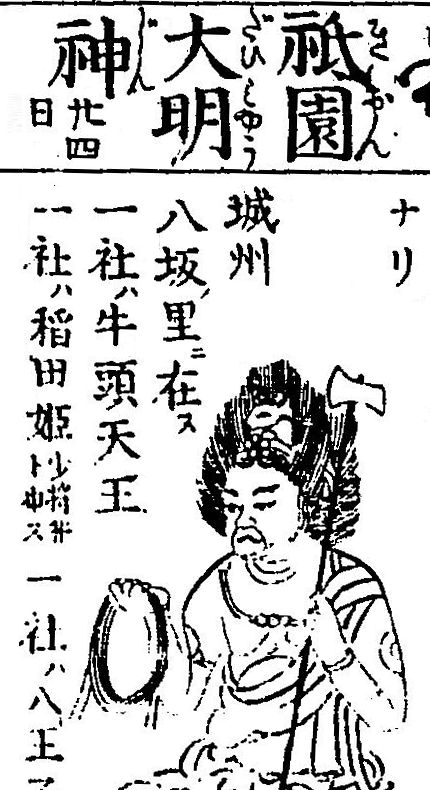 ナリ
祇園
ぎをん
大明
だいみやう
神
じん
廿四
日
城州
八坂里ニ在ス
一社ハ牛頭天王
一社ハ稲田姫
少将井
ト申ス
一社ハ八王子